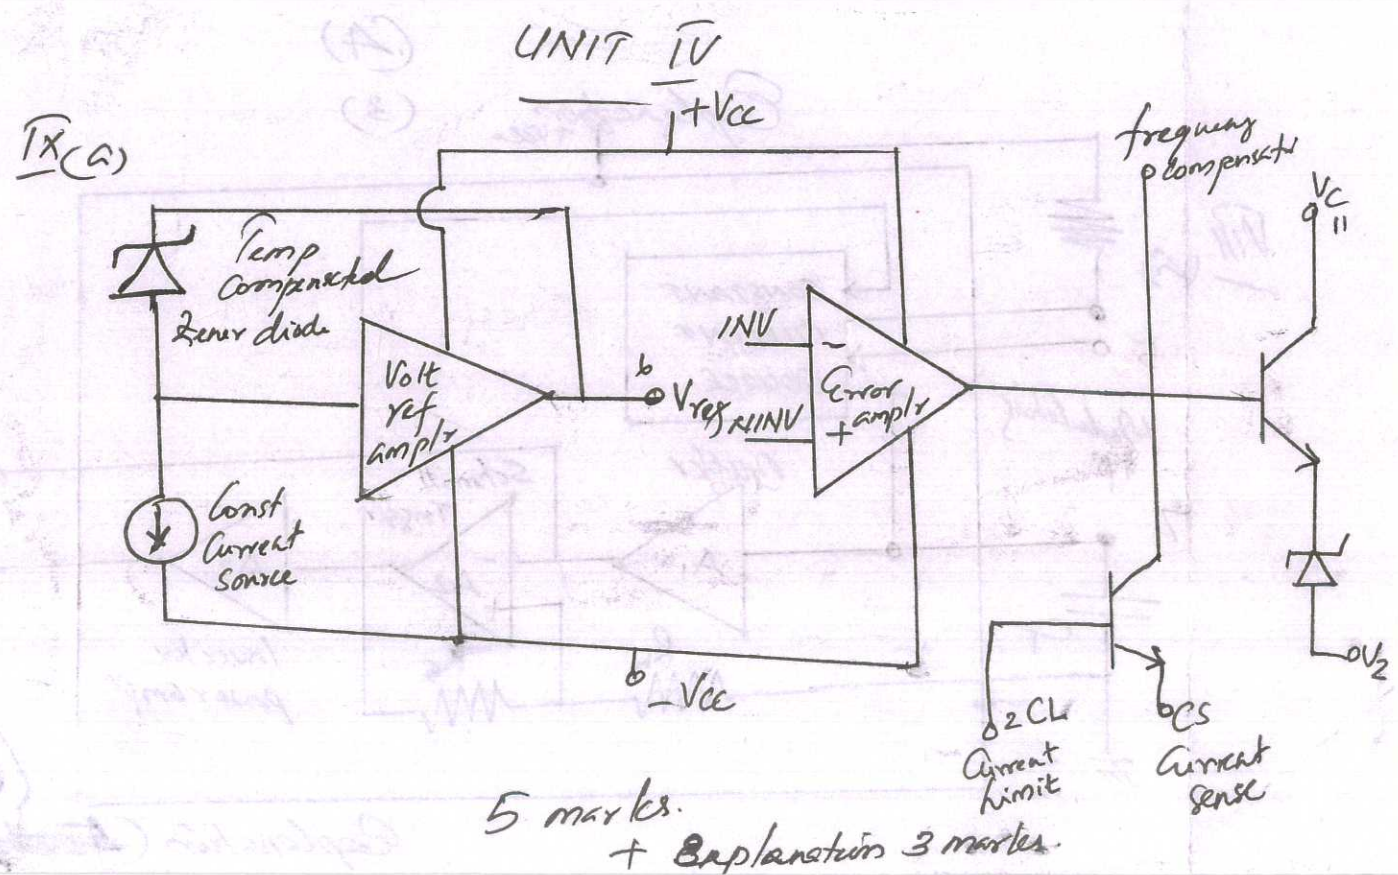 UNIT IV
+Vcc
IX(a)
frequency
compensatn
VC
11
Temp
Compensated
Zener diode
INV
-
Volt
ref
amplr
6
Vref
NINV
Error
amplr
+
Const
Current
source
-Vcc
2 CL
Current
Limit
CS
Current
sense
OVz
5 marks.
+ Explanation 3 marks.